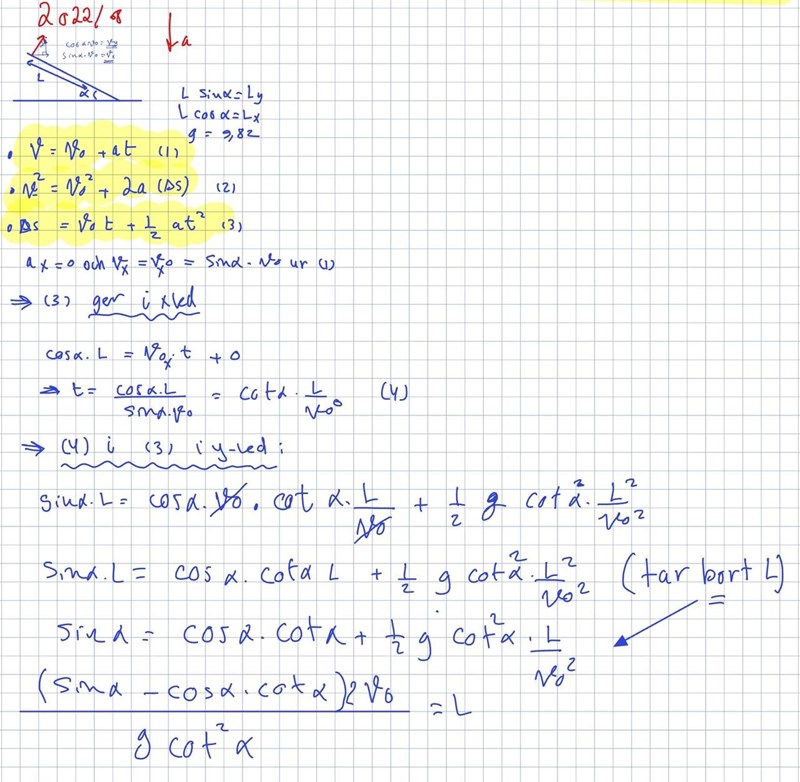 2022/8
cosα·v₀ = v₀y
sinα·v₀ = v₀x
↓a
L
α
L sinα = Ly
L cosα = Lx
g = 9,82
• V = V₀ + at (1)
• v² = v₀² + 2a (Δs) (2)
• Δs = v₀ t + 1/2 at² (3)
ax = 0 och Vx = Vx0 = Sinα · V₀ ur (1)
⇒ (3) ger i xled
cosα · L = V₀x · t + 0
⇒ t = cosα·L / sinα·v₀ = cotα · L/v₀ (4)
⇒ (4) i (3) i y-led :
sinα · L = cosα · v₀ · cot α · L/v₀ + 1/2 g cot²α · L²/v₀²
Sinα · L = cos α · cotα L + 1/2 g cot²α · L²/v₀² (tar bort L)
Sin α = cosα · cotα + 1/2 g cot²α · L/v₀²
(Sinα - cosα · cotα) 2 v₀ / g cot²α = L